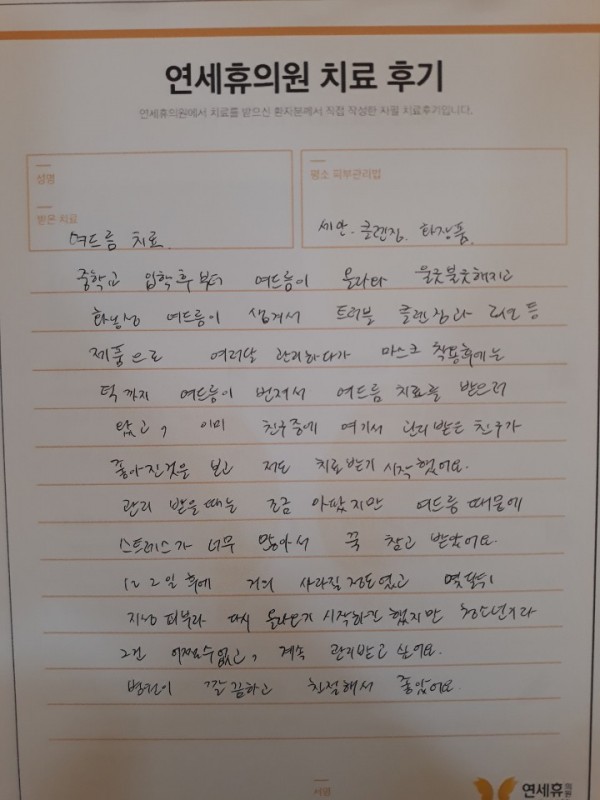 연세휴의원 치료 후기
연세휴의원에서 치료를 받으신 환자분께서 직접 작성한 자필 치료후기입니다.
성명
평소 피부관리법
받은 치료
여드름 치료.
세안. 클렌징. 화장품.
중학교 입학후부터 여드름이 올라와 울긋불긋해지고
화농성 여드름이 생겨서 트러블 클렌징과 로션 등
제품으로 여러달 관리하다가 마스크 착용후에는
턱까지 여드름이 번져서 여드름 치료를 받으러
왔고, 이미 친구중에 여기서 관리 받는 친구가
좋아진것을 보고 저도 치료받기 시작했어요.
관리 받을때는 조금 아팠지만 여드름 때문에
스트레스가 너무 많아서 꾹 참고 받았어요.
1~2일 후에 거의 사라질 정도였고 몇달뒤
지성피부라 다시 올라오기 시작하긴 했지만 청소년기라
그건 어쩔수없고, 계속 관리받고 싶어요.
병원이 깔끔하고 친절해서 좋았어요.
서명
연세휴의원